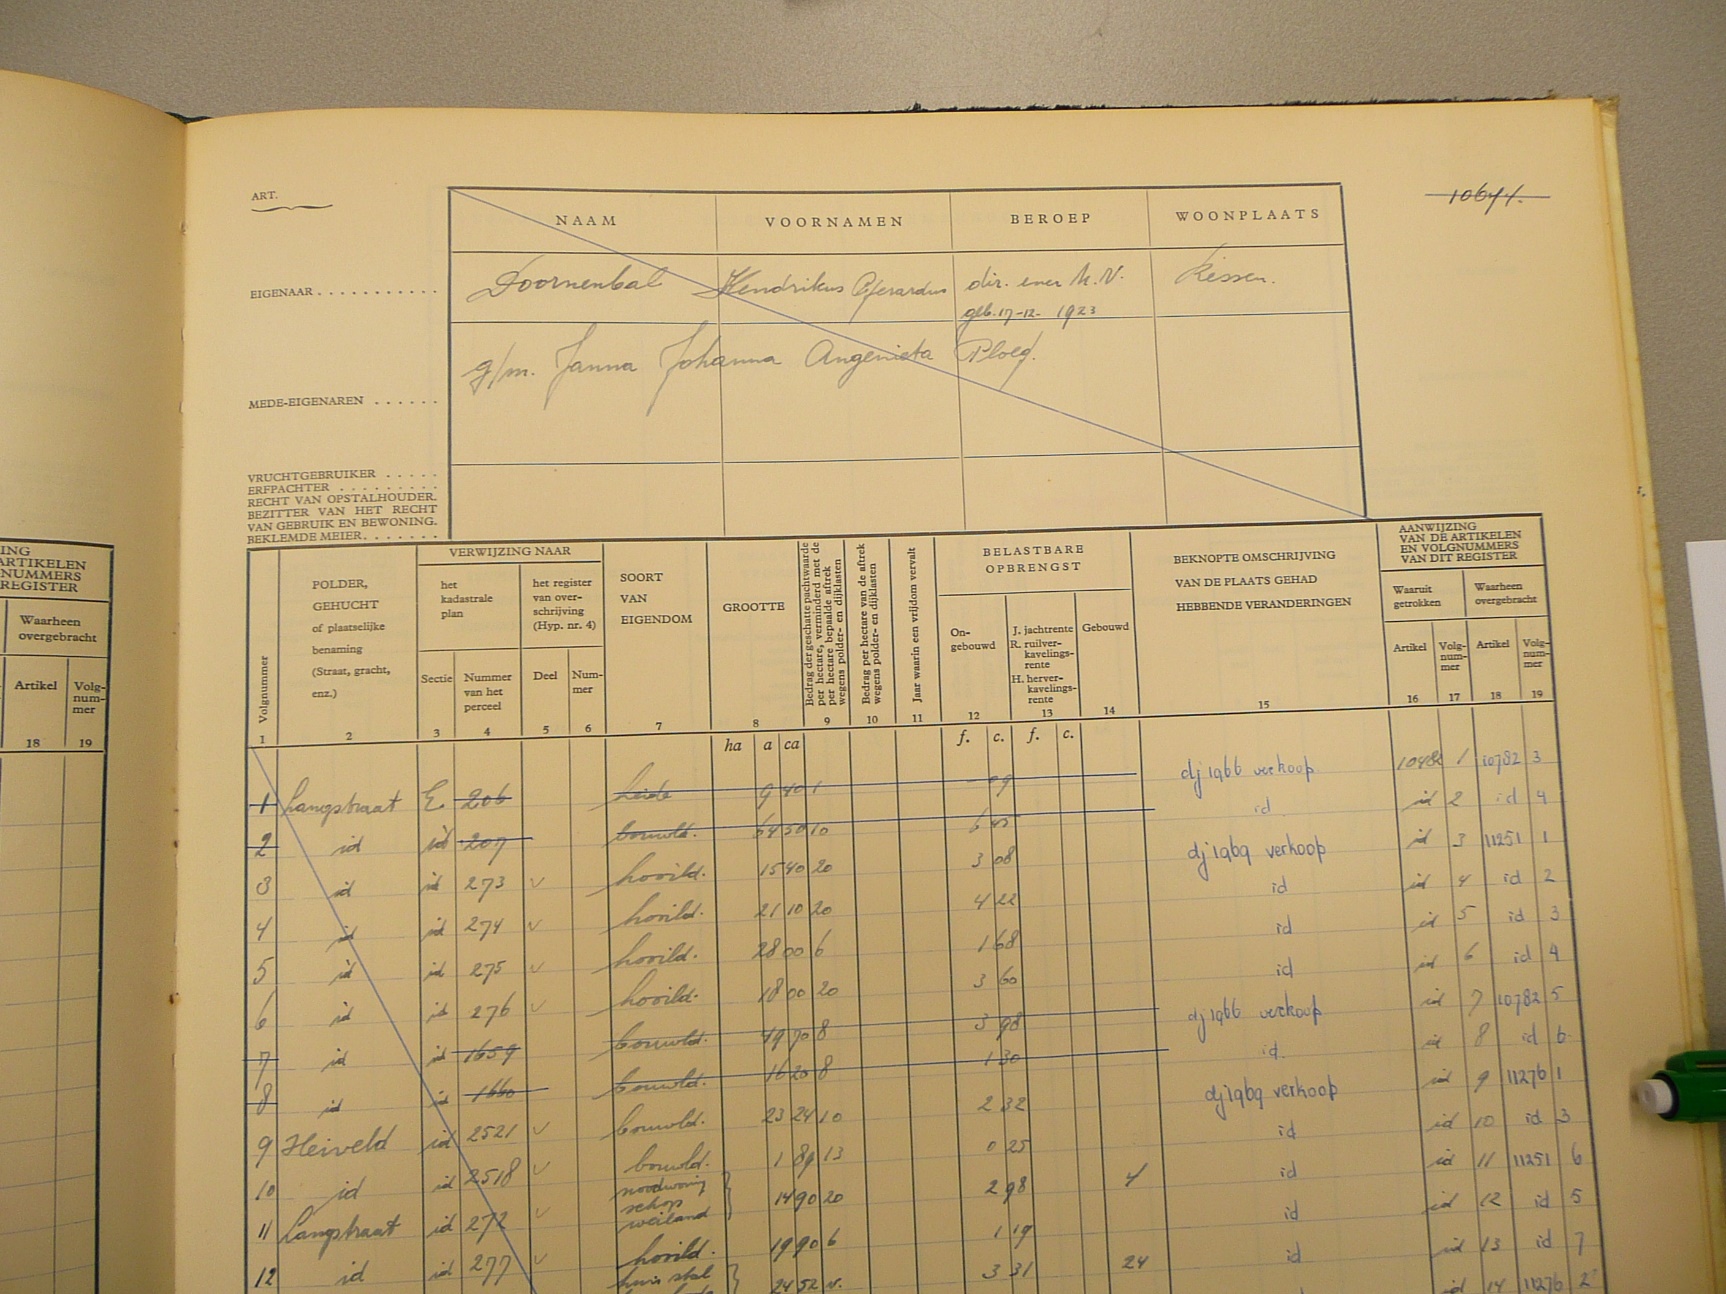 ART.
10644.
NAAM VOORNAMEN BEROEP WOONPLAATS
EIGENAAR . . . . . . . . . . . Doornenbal Hendrikus Gerardus dir. ener N.V. Ressen.
geb. 17-12-1923
g/m. Janna Johanna Angenieta Ploeg.
MEDE-EIGENAREN . . . . . .
VRUCHTGEBRUIKER . . . . .
ERFPACHTER . . . . . . . . .
RECHT VAN OPSTALHOUDER.
BEZITTER VAN HET RECHT
VAN GEBRUIK EN BEWONING.
BEKLEMDE MEIER. . . . . . .
ING
ARTIKELEN
NUMMERS
REGISTER
Waarheen
overgebracht
Artikel
Volg-
num-
mer
18 19
Volgnummer
POLDER,
GEHUCHT
of plaatselijke
benaming
(Straat, gracht,
enz.)
VERWIJZING NAAR
het
kadastrale
plan
het register
van over-
schrijving
(Hyp. nr. 4)
Sectie
Nummer
van het
perceel
Deel
Num-
mer
SOORT
VAN
EIGENDOM
GROOTTE
Bedrag der geschatte pachtwaarde
per hectare, verminderd met de
per hectare bepaalde aftrek
wegens polder- en dijklasten
Bedrag per hectare van de aftrek
wegens polder- en dijklasten
Jaar waarin een vrijdom vervalt
BELASTBARE
OPBRENGST
On-
gebouwd
J. jachtrente
R. ruilver-
kavelings-
rente
H. herver-
kavelings-
rente
Gebouwd
BEKNOPTE OMSCHRIJVING
VAN DE PLAATS GEHAD
HEBBENDE VERANDERINGEN
AANWIJZING
VAN DE ARTIKELEN
EN VOLGNUMMERS
VAN DIT REGISTER
Waaruit
getrokken
Waarheen
overgebracht
Artikel
Volg-
num-
mer
Artikel
Volg-
num-
mer
1 2 3 4 5 6 7 8 9 10 11 12 13 14 15 16 17 18 19
ha a ca f. c. f. c.
1 Langstraat E 206 heide 9 40 1 - 09 dj 1966 verkoop 10482 1 10782 3
2 id id 207 bouwld. 64 50 10 6 45 id id 2 id 4
3 id id 273 v hooild. 15 40 20 3 08 dj 1969 verkoop id 3 11251 1
4 id id 274 v hooild. 21 10 20 4 22 id id 4 id 2
5 id id 275 v hooild. 28 00 6 1 68 id id 5 id 3
6 id id 276 v hooild. 18 00 20 3 60 id id 6 id 4
7 id id 1659 bouwld. 49 70 8 3 98 dj 1966 verkoop id 7 10782 5
8 id id 1660 bouwld. 16 20 8 1 30 id. id 8 id 6
9 Heiveld id 2521 v bouwld. 23 24 10 2 32 dj 1969 verkoop id 9 11276 1
10 id id 2518 v bouwld. 1 89 13 0 25 id id 10 id 3
11 Langstraat id 272 v noodwoning schop weiland 14 90 20 2 98 4 id id 11 11251 6
12 id id 277 v hooild. 19 90 6 1 19 id id 12 id 5
huis stal 24 52 v. 3 31 24 id id 13 id 7
id 14 11276 2